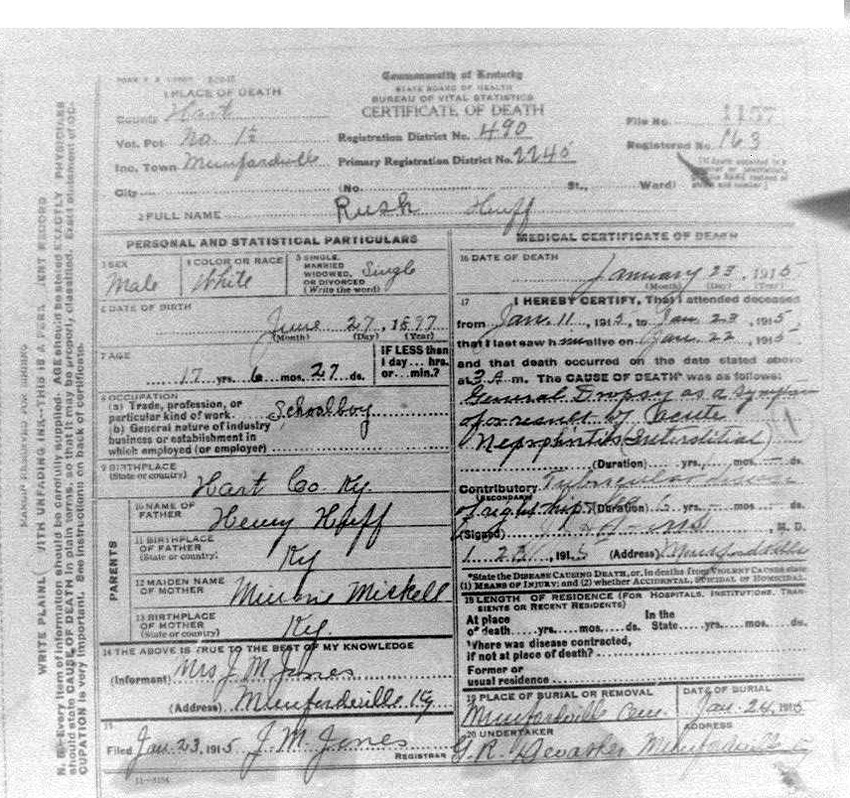 Commonwealth of Kentucky
STATE BOARD OF HEALTH
BUREAU OF VITAL STATISTICS
CERTIFICATE OF DEATH
1 PLACE OF DEATH
County Hart
Vot. Pct No. 1½
Inc. Town Munfordville
City
Registration District No. 490
Primary Registration District No. 2240
(No. St., Ward)
File No. 1157
Registered No. 163
2 FULL NAME Rush Huff
PERSONAL AND STATISTICAL PARTICULARS
3 SEX Male
4 COLOR OR RACE White
5 SINGLE, MARRIED WIDOWED, OR DIVORCED (Write the word) Single
6 DATE OF BIRTH
June 27, 1897
(Month) (Day) (Year)
7 AGE
17 yrs. 6 mos. 27 ds.
IF LESS than
1 day... hrs.
or... min.?
8 OCCUPATION
(a) Trade, profession, or
particular kind of work. Schoolboy
(b) General nature of industry
business or establishment in
which employed (or employer)
9 BIRTHPLACE
(State or country) Hart Co. Ky.
PARENTS
10 NAME OF
FATHER Henry Huff
11 BIRTHPLACE
OF FATHER
(State or country) Ky
12 MAIDEN NAME
OF MOTHER Miskell
13 BIRTHPLACE
OF MOTHER
(State or country) Ky.
14 THE ABOVE IS TRUE TO THE BEST OF MY KNOWLEDGE
(Informant) Mrs J. M. Jones
(Address) Munfordville Ky
15
Filed Jan. 23, 1915 J. M. Jones
REGISTRAR
MEDICAL CERTIFICATE OF DEATH
16 DATE OF DEATH
January 23, 1915
(Month) (Day) (Year)
17 I HEREBY CERTIFY, That I attended deceased
from Jan. 11, 1915, to Jan 23, 1915
that I last saw him alive on Jan. 22, 1915
and that death occurred on the date stated above
at 3 A. m. The CAUSE OF DEATH* was as follows:
General Dropsy as a Symptom
or result by acute
Nephritis (Interstitial)
(Duration) yrs. mos. ds.
Contributory Tubercular
(SECONDARY)
of right hip (Duration) yrs. mos. ds.
(Signed) M. D.
1 23, 1915 (Address) Munfordville
*State the DISEASE CAUSING DEATH, or, in deaths from VIOLENT CAUSES state
(1) MEANS OF INJURY; and (2) whether ACCIDENTAL, SUICIDAL or HOMICIDAL.
18 LENGTH OF RESIDENCE (FOR HOSPITALS, INSTITUTIONS, TRAN-
SIENTS OR RECENT RESIDENTS)
At place In the
of death yrs. mos. ds. State yrs. mos. ds.
Where was disease contracted,
if not at place of death?
Former or
usual residence
19 PLACE OF BURIAL OR REMOVAL
Munfordville Cem.
DATE OF BURIAL
Jan. 24, 1915
20 UNDERTAKER
G. R. Devasher
ADDRESS
Munfordville
MARGIN RESERVED FOR BINDING
WRITE PLAINLY WITH UNFADING INK—THIS IS A PERMANENT RECORD
N. B.—Every item of information should be carefully supplied. AGE should be stated EXACTLY. PHYSICIANS
should state CAUSE OF DEATH in plain terms, so that it may be properly classified. Exact statement of OC-
CUPATION is very important. See instructions on back of certificate.